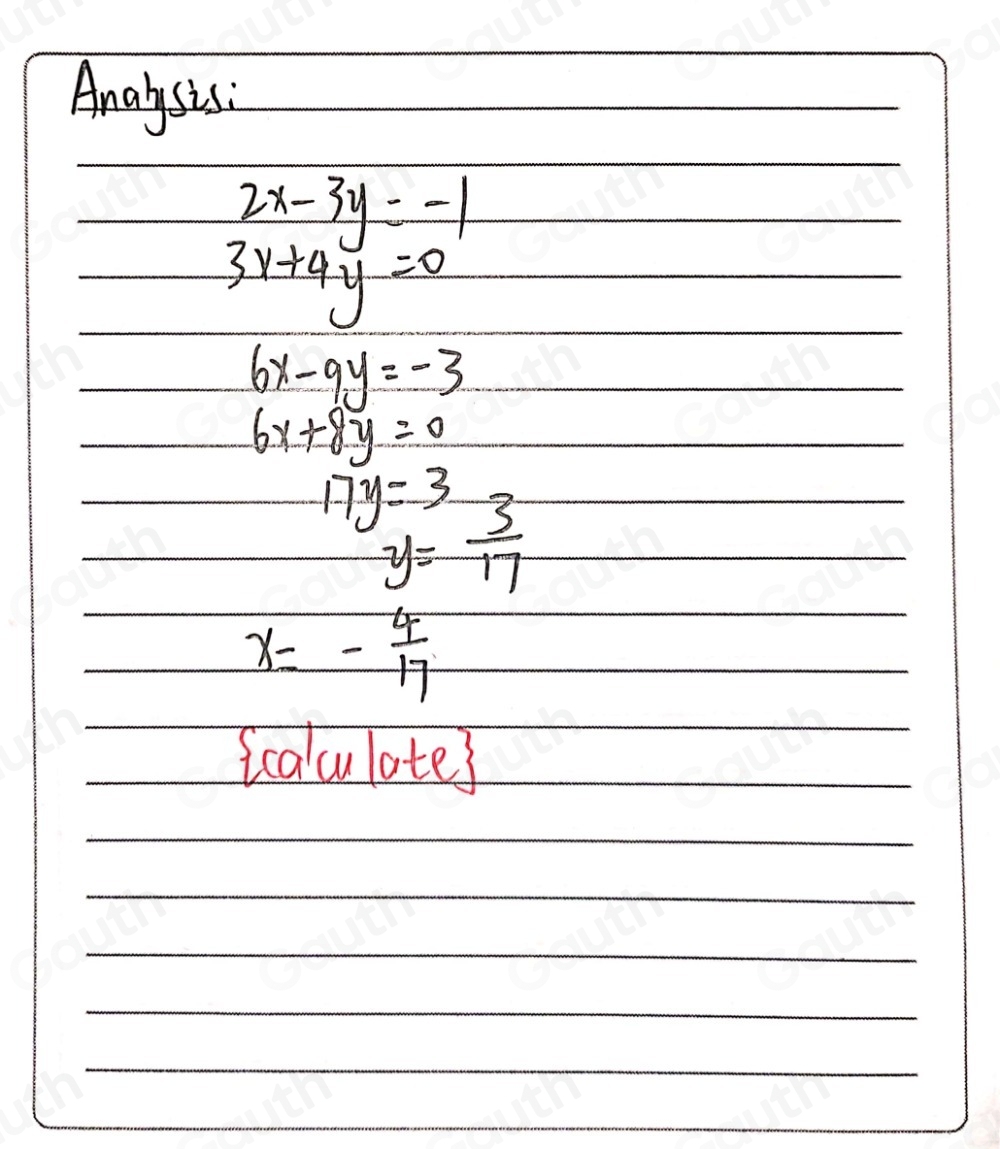 Analysis:
2x-3y=-1
3x+4y=0
6x-9y=-3
6x+8y=0
17y=3
y=3/17
x=-4/17
{calculate}